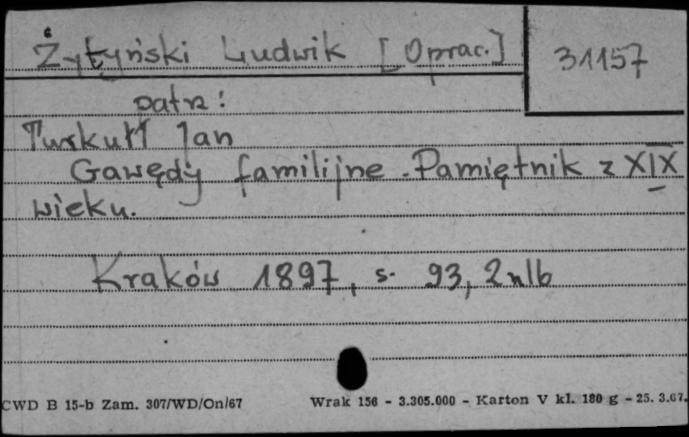 Żytyński Ludwik [Oprac.]
31157
patrz:
Turkułł Jan
Gawędy familijne. Pamiętnik z XIX
wieku.
Kraków 1897, s. 93, 2 nlb
CWD B 15-b Zam. 307/WD/On/67 Wrak 156 - 3.305.000 - Karton V kl. 180 g - 25. 3.67.